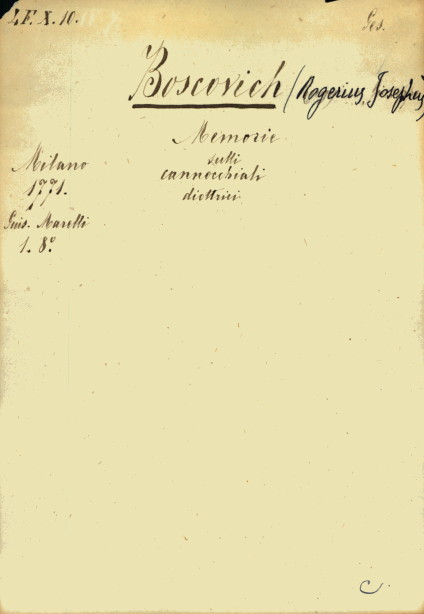 L.F.X.10.
Ges.
Boscovich (Rogerius, Josephus)
Memorie
sulli
cannocchiali
diottrici
Milano
1771.
Gius. Marelli
1. 8°.
C.